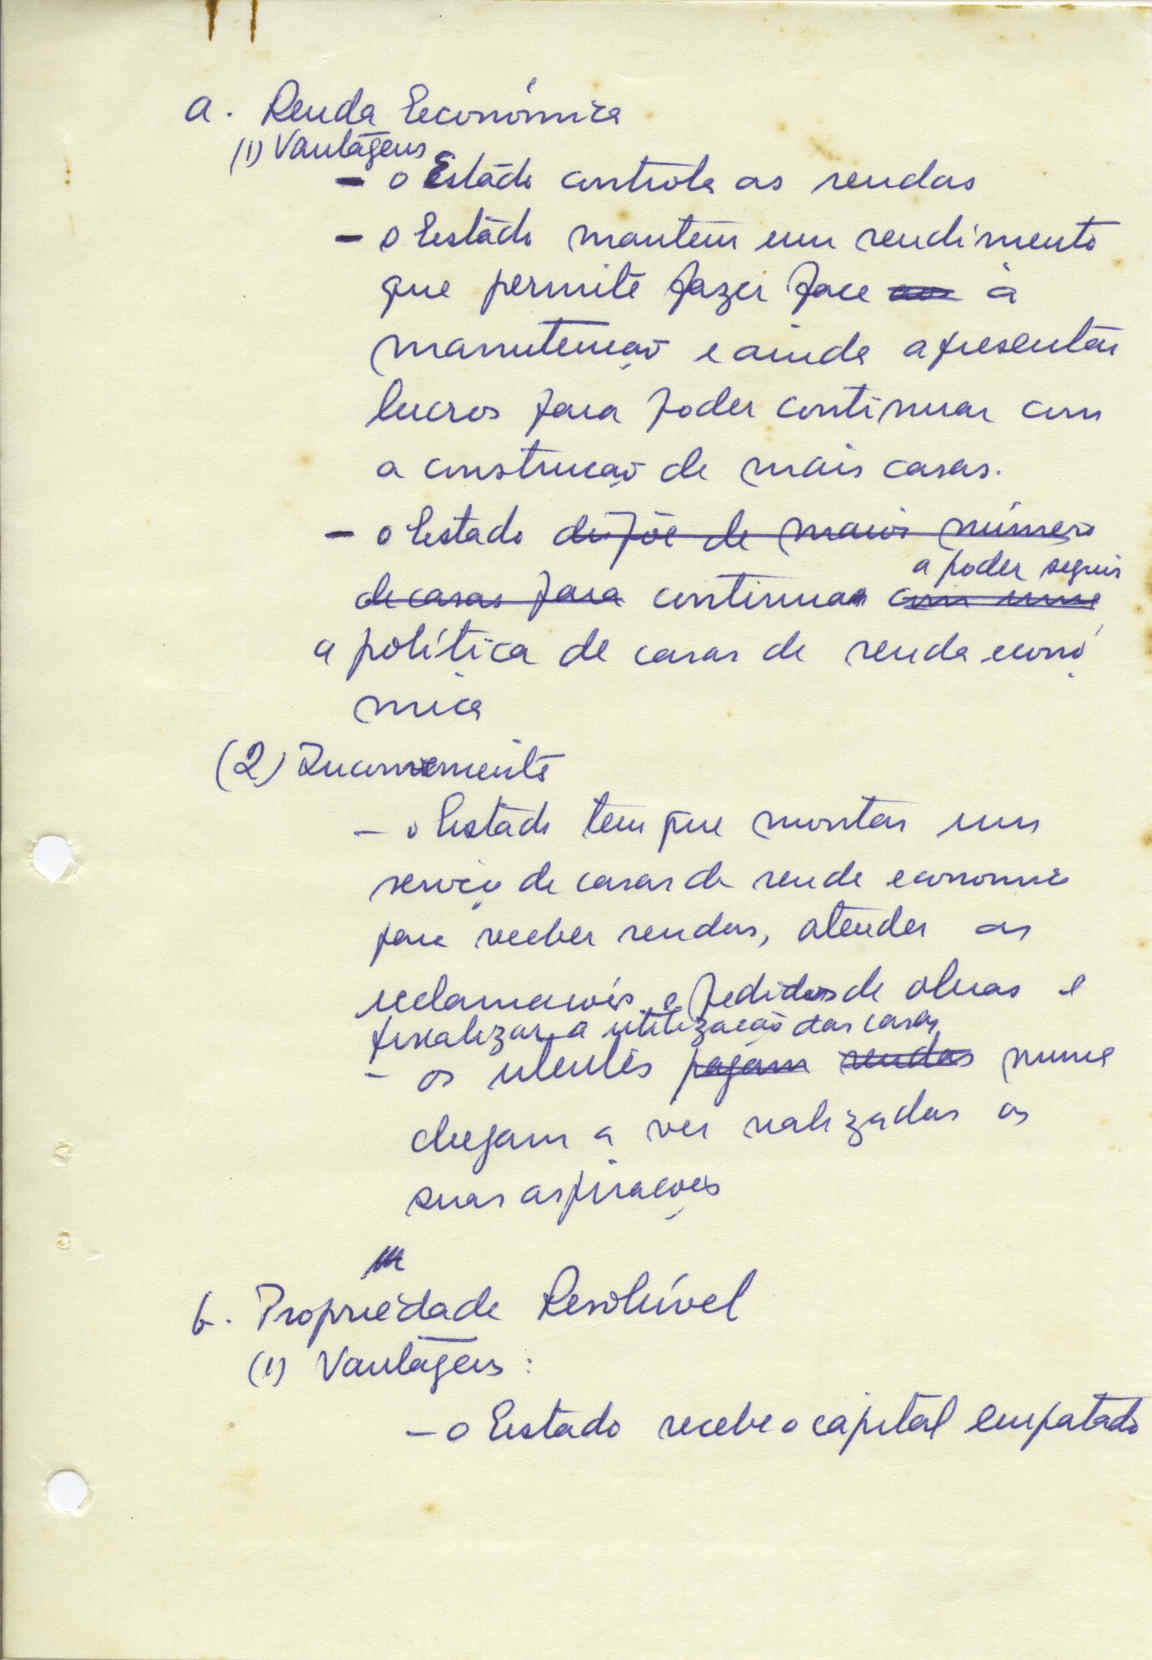 a. Renda Económica
(1) Vantagens
- o Estado controla as rendas
- o Estado mantem um rendimento
que permite fazer face à
manutenção e ainda apresentar
lucros para poder continuar com
a construção de mais casas.
- o Estado dispõe de maior número
a poder seguir
de casas para continuar com uma
a política de casas de renda econó
mica
(2) Inconveniente
- o Estado tem que montar um
serviço de casas de renda economica
para receber rendas, atender as
reclamações e pedidos de obras e
fiscalizar a utilização das casas
- os utentes pagam rendas nunca
chegam a ver realizadas as
suas aspirações
b. Propriedade Resolúvel
(1) Vantagens:
- o Estado recebe o capital empatado